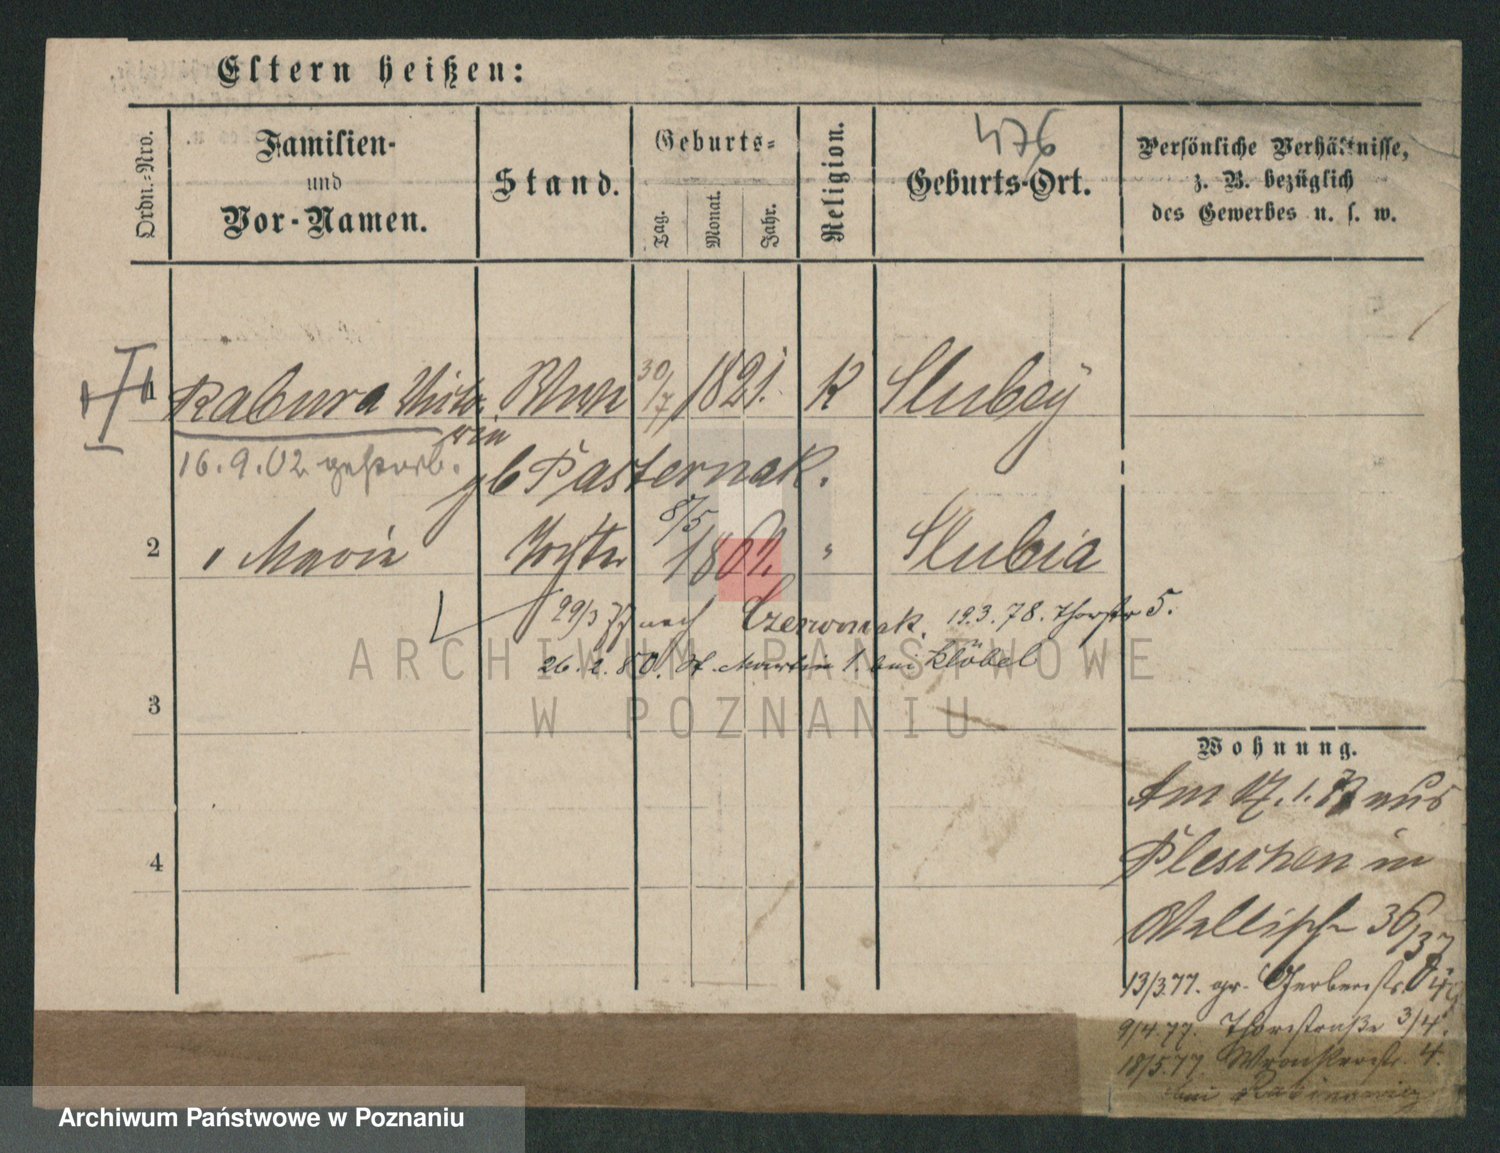 Eltern heißen:
476
Ordn.-Nro.
Familien-
und
Vor-Namen.
Stand.
Geburts-
Tag.
Monat.
Jahr.
Religion.
Geburts-Ort.
Persönliche Verhältnisse,
z. B. bezüglich
des Gewerbes u. s. w.
1 Rabura 30/7 1821. K
16.9.02 gestorb. gb Pasternak.
2 " Marie 8/5 "
29/3 77 nach 19.3.78. Thorstr 5.
26.2.80. St. Martin 1. bei Klöbel
3
4
Wohnung.
Am 17.1. aus
Pleschen in
Wallisch 36/37
13/3.77. gr. Gerberstr.
9/4.77. Thorstraße 3/4.
18/5.77 Wronkerstr. 4.
bei
ARCHIWUM PAŃSTWOWE
W POZNANIU
Archiwum Państwowe w Poznaniu